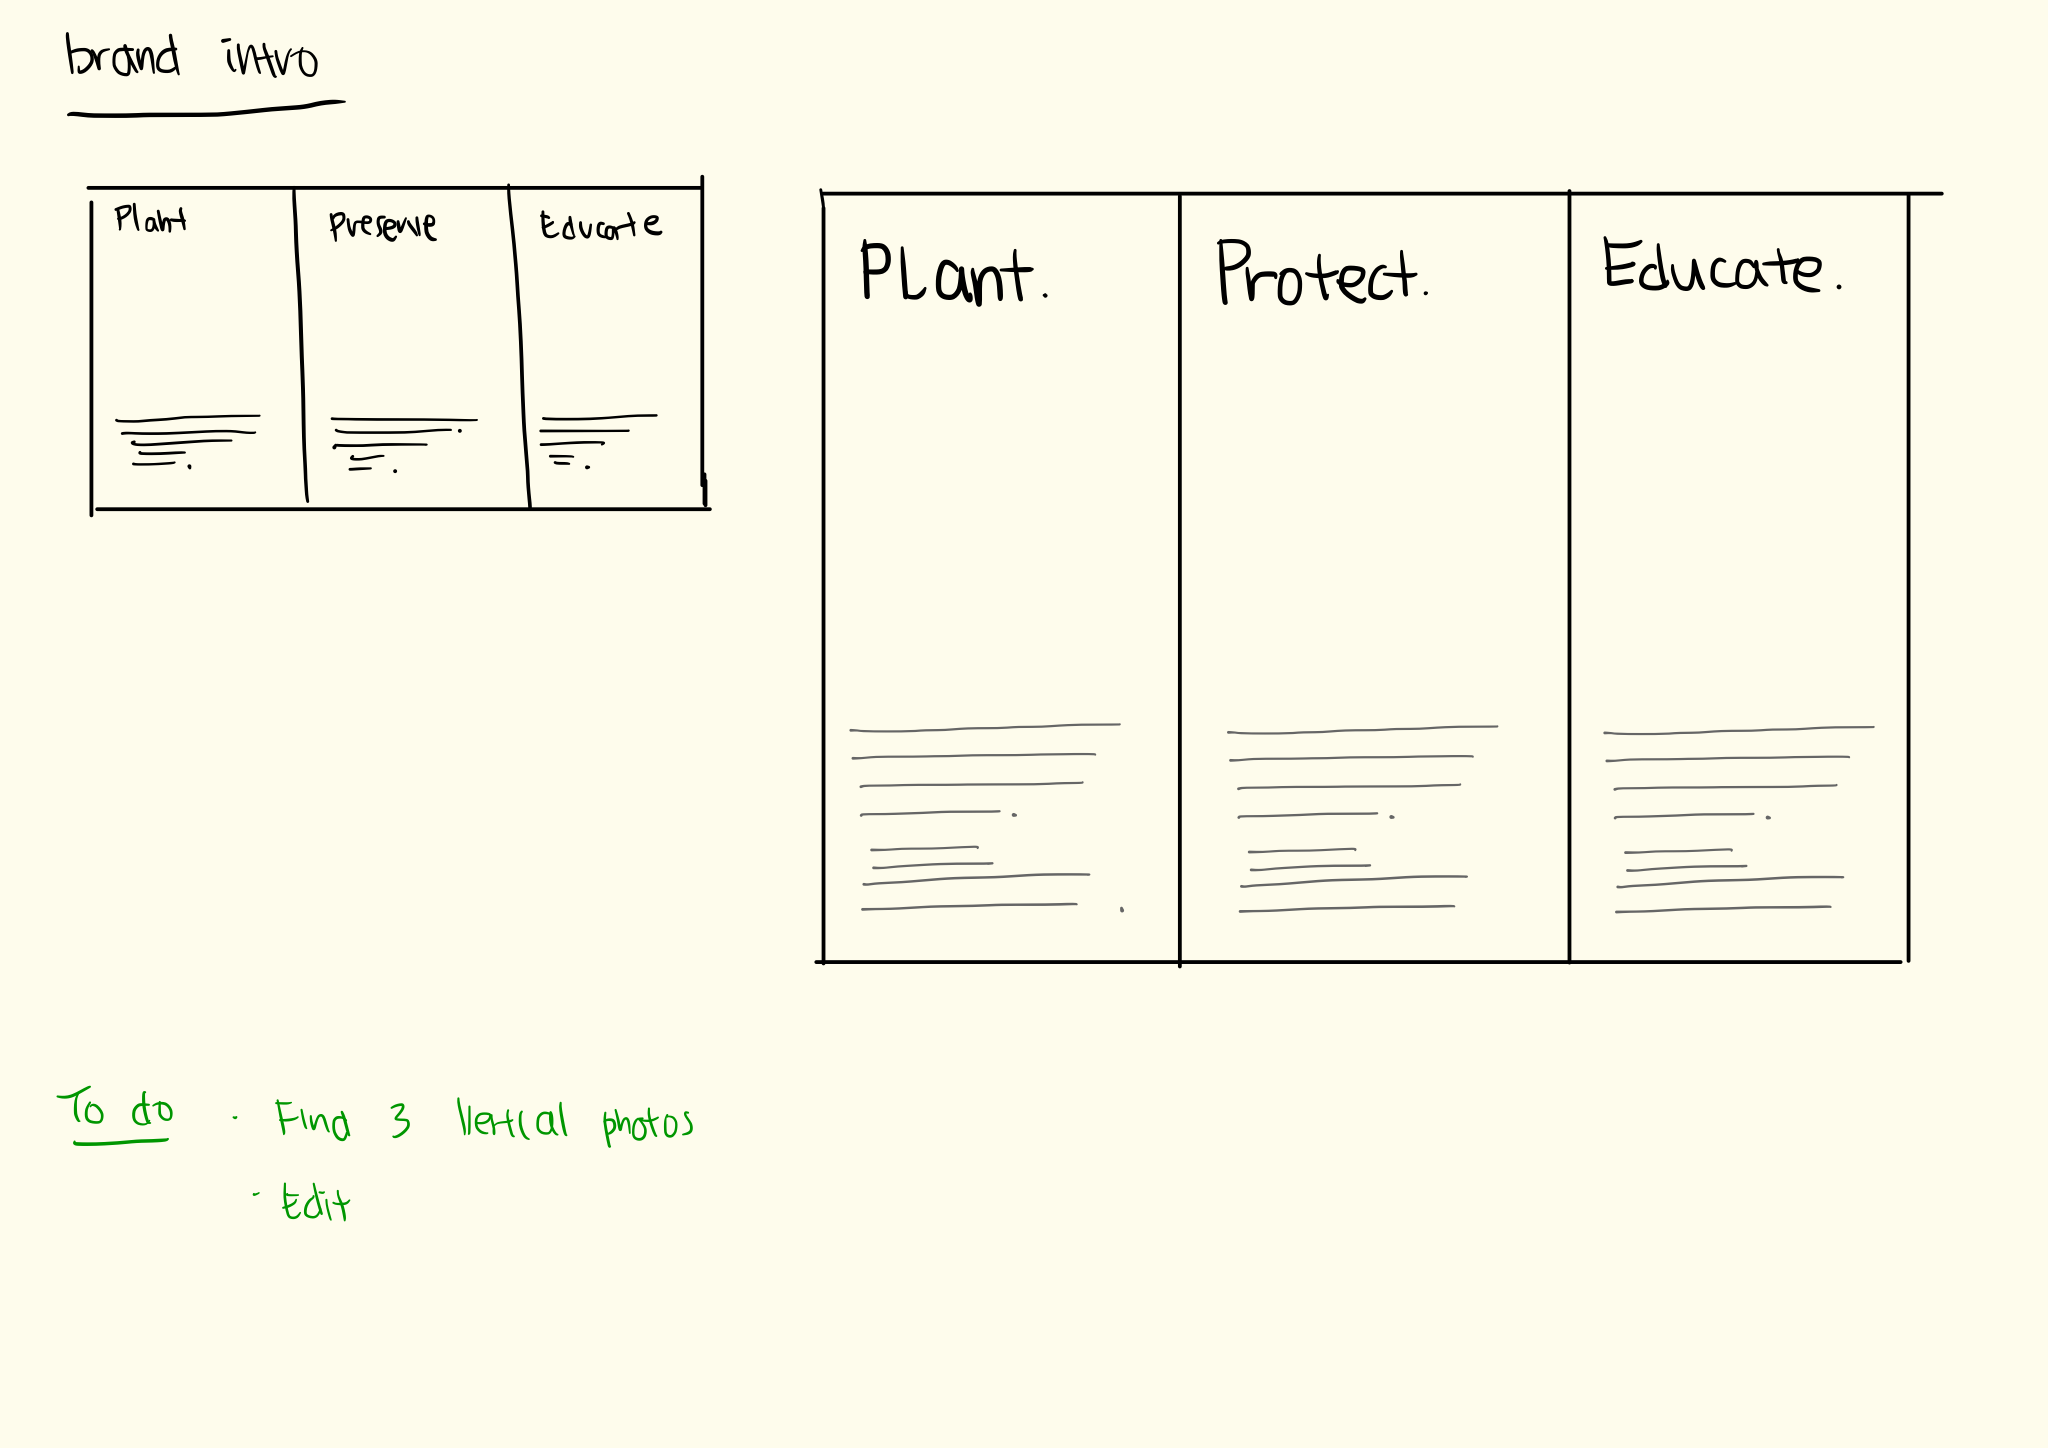 brand intro
Plant
Preserve
Educate
Plant.
Protect.
Educate.
To do
· Find 3 vertical photos
· Edit